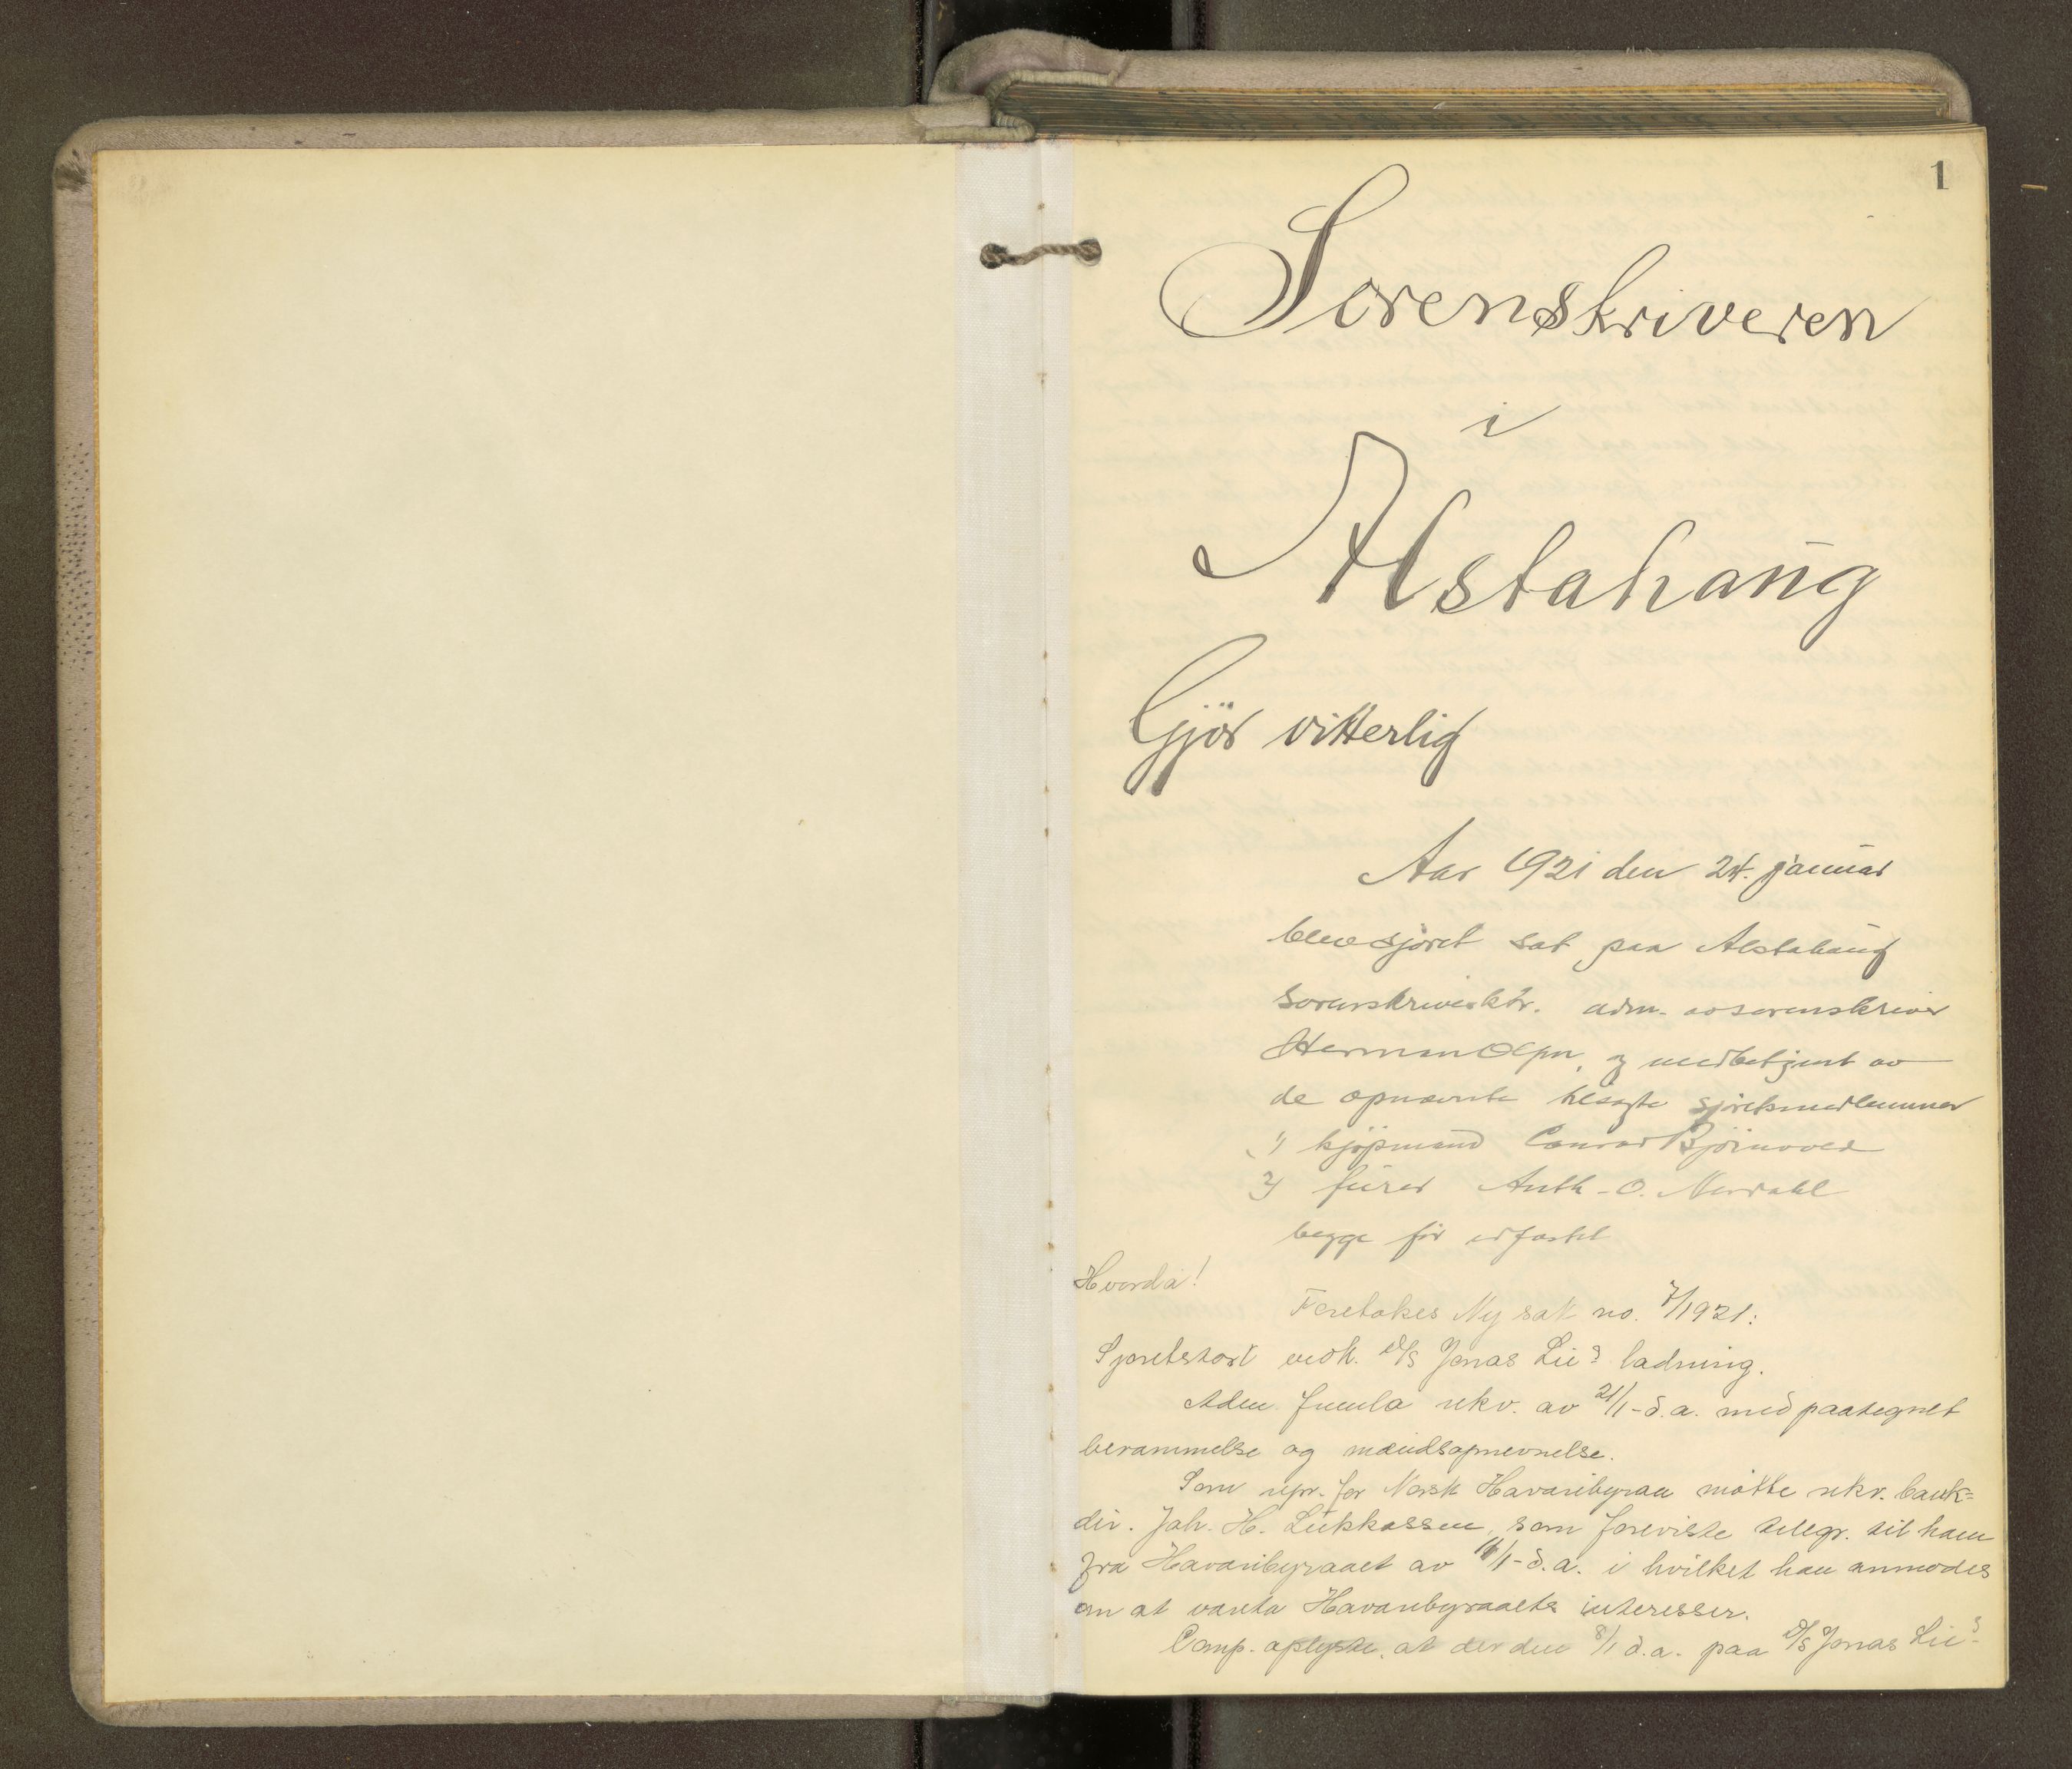 1
Sorenskriveren
i
Alstahaug
Gjör vitterlig
Aar 1921 den 24. januar
blev sjöret sat paa Alstahaug
sorenskriverktr. adm. av sorenskriver
Herman og medbetjent av
de opnævnte tilsagte sjöretsmedlemmer
1) kjøpmand Conrad
2) Anth. O. Nerdahl
begge før edfæstet
Hvorda!
Foretokes Ny sak no. 7/1921:
Sjøretskort vedk. D/S Jonas Lie's ladning.
Adm. fremla rekv. av 21/1-d.a. med paategnet
berammelse og mændsopnevnelse.
Som repr. for Norsk Havaribyraa møtte rekv. bank=
dir. Joh. H. Lukkassen, som foreviste telegr. til ham
fra Havaribyraaet av d.a. i hvilket han anmodes
om at vareta Havaribyraaets interesser.
Comp. oplyste, at der den 8/1 d.a. paa D/S Jonas Lie's